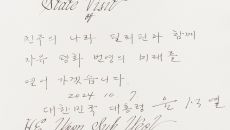 State Visit
of
친구의 나라 필리핀과 함께
자유 평화 번영의 미래를
열어 가겠습니다.
2024. 10. 7
대한민국 대통령 윤석열
H.E. Yoon Suk Yeol